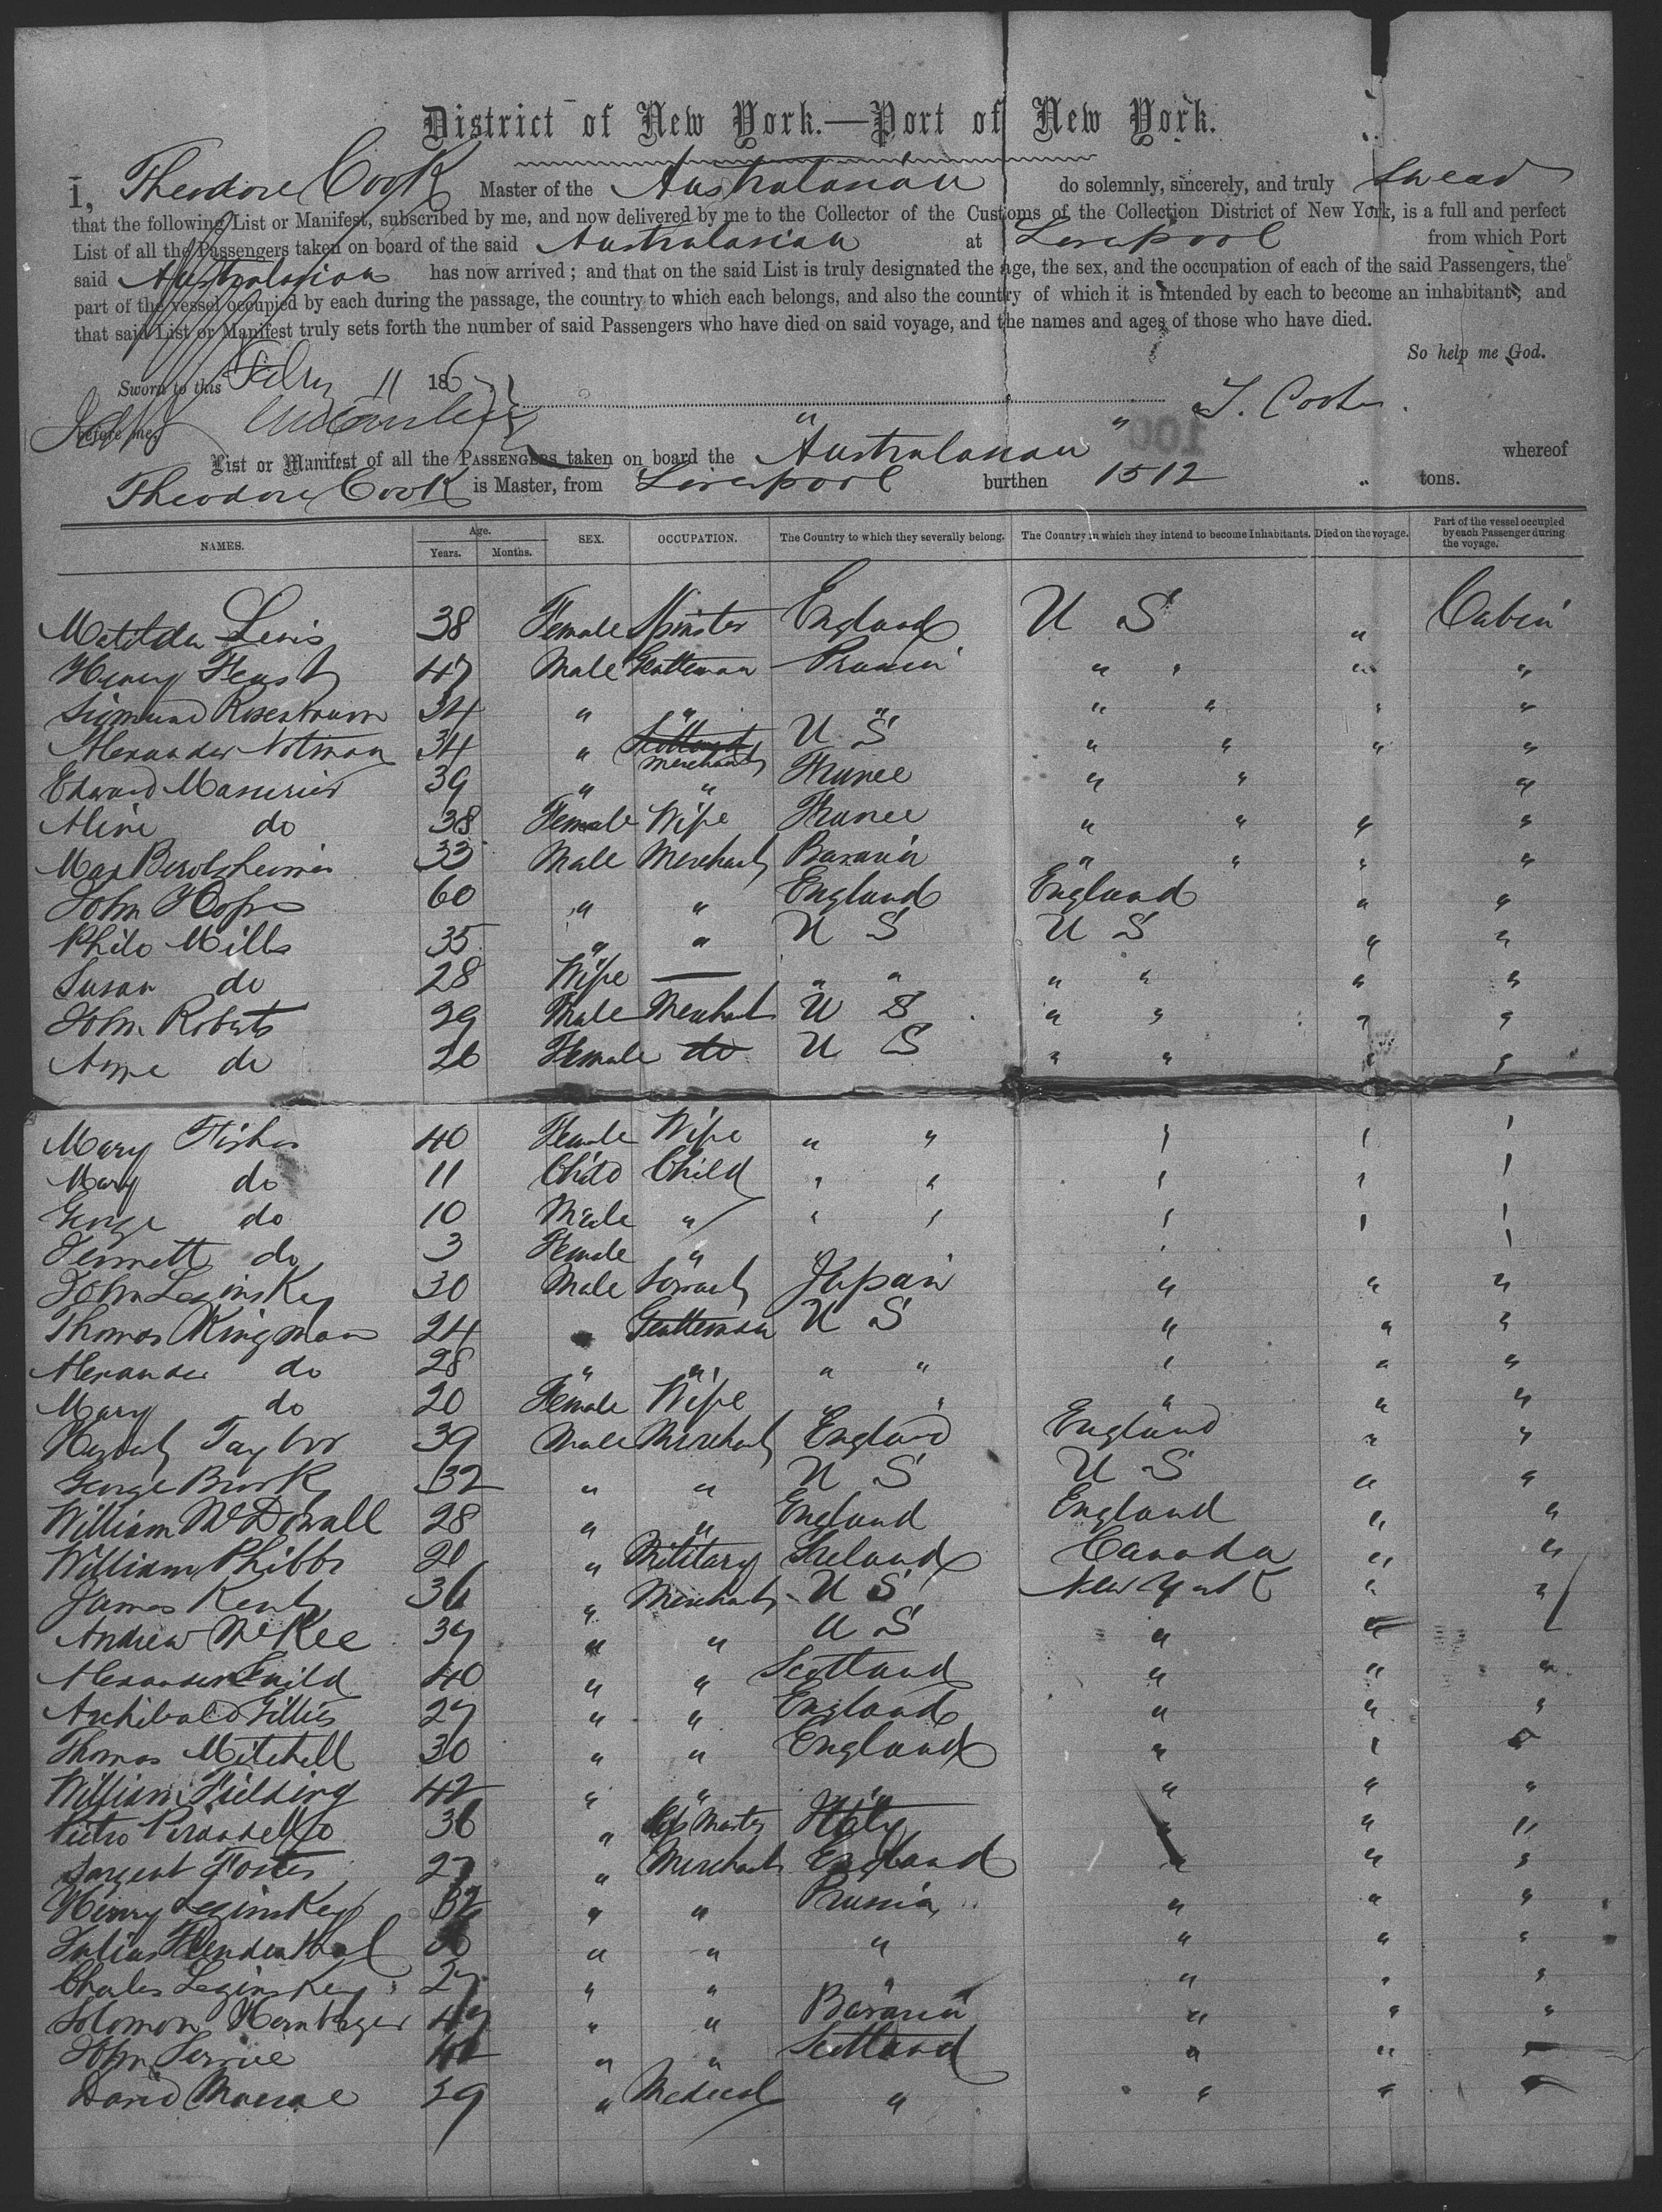 District of New York.—Port of New York.
I, Theodore Cook Master of the Australasian do solemnly, sincerely, and truly Swear
that the following List or Manifest, subscribed by me, and now delivered by me to the Collector of the Customs of the Collection District of New York, is a full and perfect
List of all the Passengers taken on board of the said Australasian at Liverpool from which Port
said Australasian has now arrived; and that on the said List is truly designated the age, the sex, and the occupation of each of the said Passengers, the
part of the vessel occupied by each during the passage, the country to which each belongs, and also the country of which it is intended by each to become an inhabitant; and
that said List or Manifest truly sets forth the number of said Passengers who have died on said voyage, and the names and ages of those who have died.
So help me God.
Sworn to this Feby 11 186
before me, T. Cook
List or Manifest of all the PASSENGERS taken on board the Australasian whereof
Theodore Cook is Master, from Liverpool burthen 1512 tons.
NAMES. Age. Years. Months. SEX. OCCUPATION. The Country to which they severally belong. The Country in which they intend to become Inhabitants. Died on the voyage. Part of the vessel occupied by each Passenger during the voyage.
Matilda Lewis 38 Female Spinster England U S " Cabin
Henry 47 Male Gentleman Prussia " " " "
Sigmund Rosenbaum 34 " " " " " " "
Alexander Notman 34 " Merchant U S " " " "
Edward 39 " " France " " "
Aline do 38 Female Wife France " " " "
Max Berolzheimer 33 Male Merchant Bavaria " " " "
John Hope 60 " " England England " "
Philo Mills 35 " " U S U S " "
Susan do 28 Wife — " " " " " "
John Roberts 29 Male Merchant U S " " " "
Anne do 26 Female do U S " " " "
Mary Fisher 40 Female Wife " " " " "
Mary do 11 Child Child " " " " "
George do 10 Male " " " " " "
do 3 Female " " " "
John Leginskey 30 Male Japan " " "
Thomas Kingman 24 Gentleman U S " " "
Alexander do 28 " " " " " " "
Mary do 20 Female Wife " " " " "
Herbert Taylor 39 Male Merchant England England " "
George Brook 32 " " U S U S " "
William McDowall 28 " " England England " "
William Phibbs 21 " Military Ireland Canada " "
James Kent 36 " Merchant U S New York " "
Andrew McKee 39 " " U S " "
Alexander Guild 40 " " Scotland " " "
Archibald Gillies 27 " " England " " "
Thomas Mitchell 30 " " England " " "
William Fielding 42 " " " " " "
Pietro Pirandello 36 " Master Italy " " "
Sargent Foster 27 " Merchant England " " "
Henry Leginskey 32 " " Prussia " " "
Julius 30 " " " " " "
Charles Leginskey 27 " " " " " "
Solomon 49 " " Bavaria " " "
John 40 " " Scotland " "
David 29 " Medical " " "